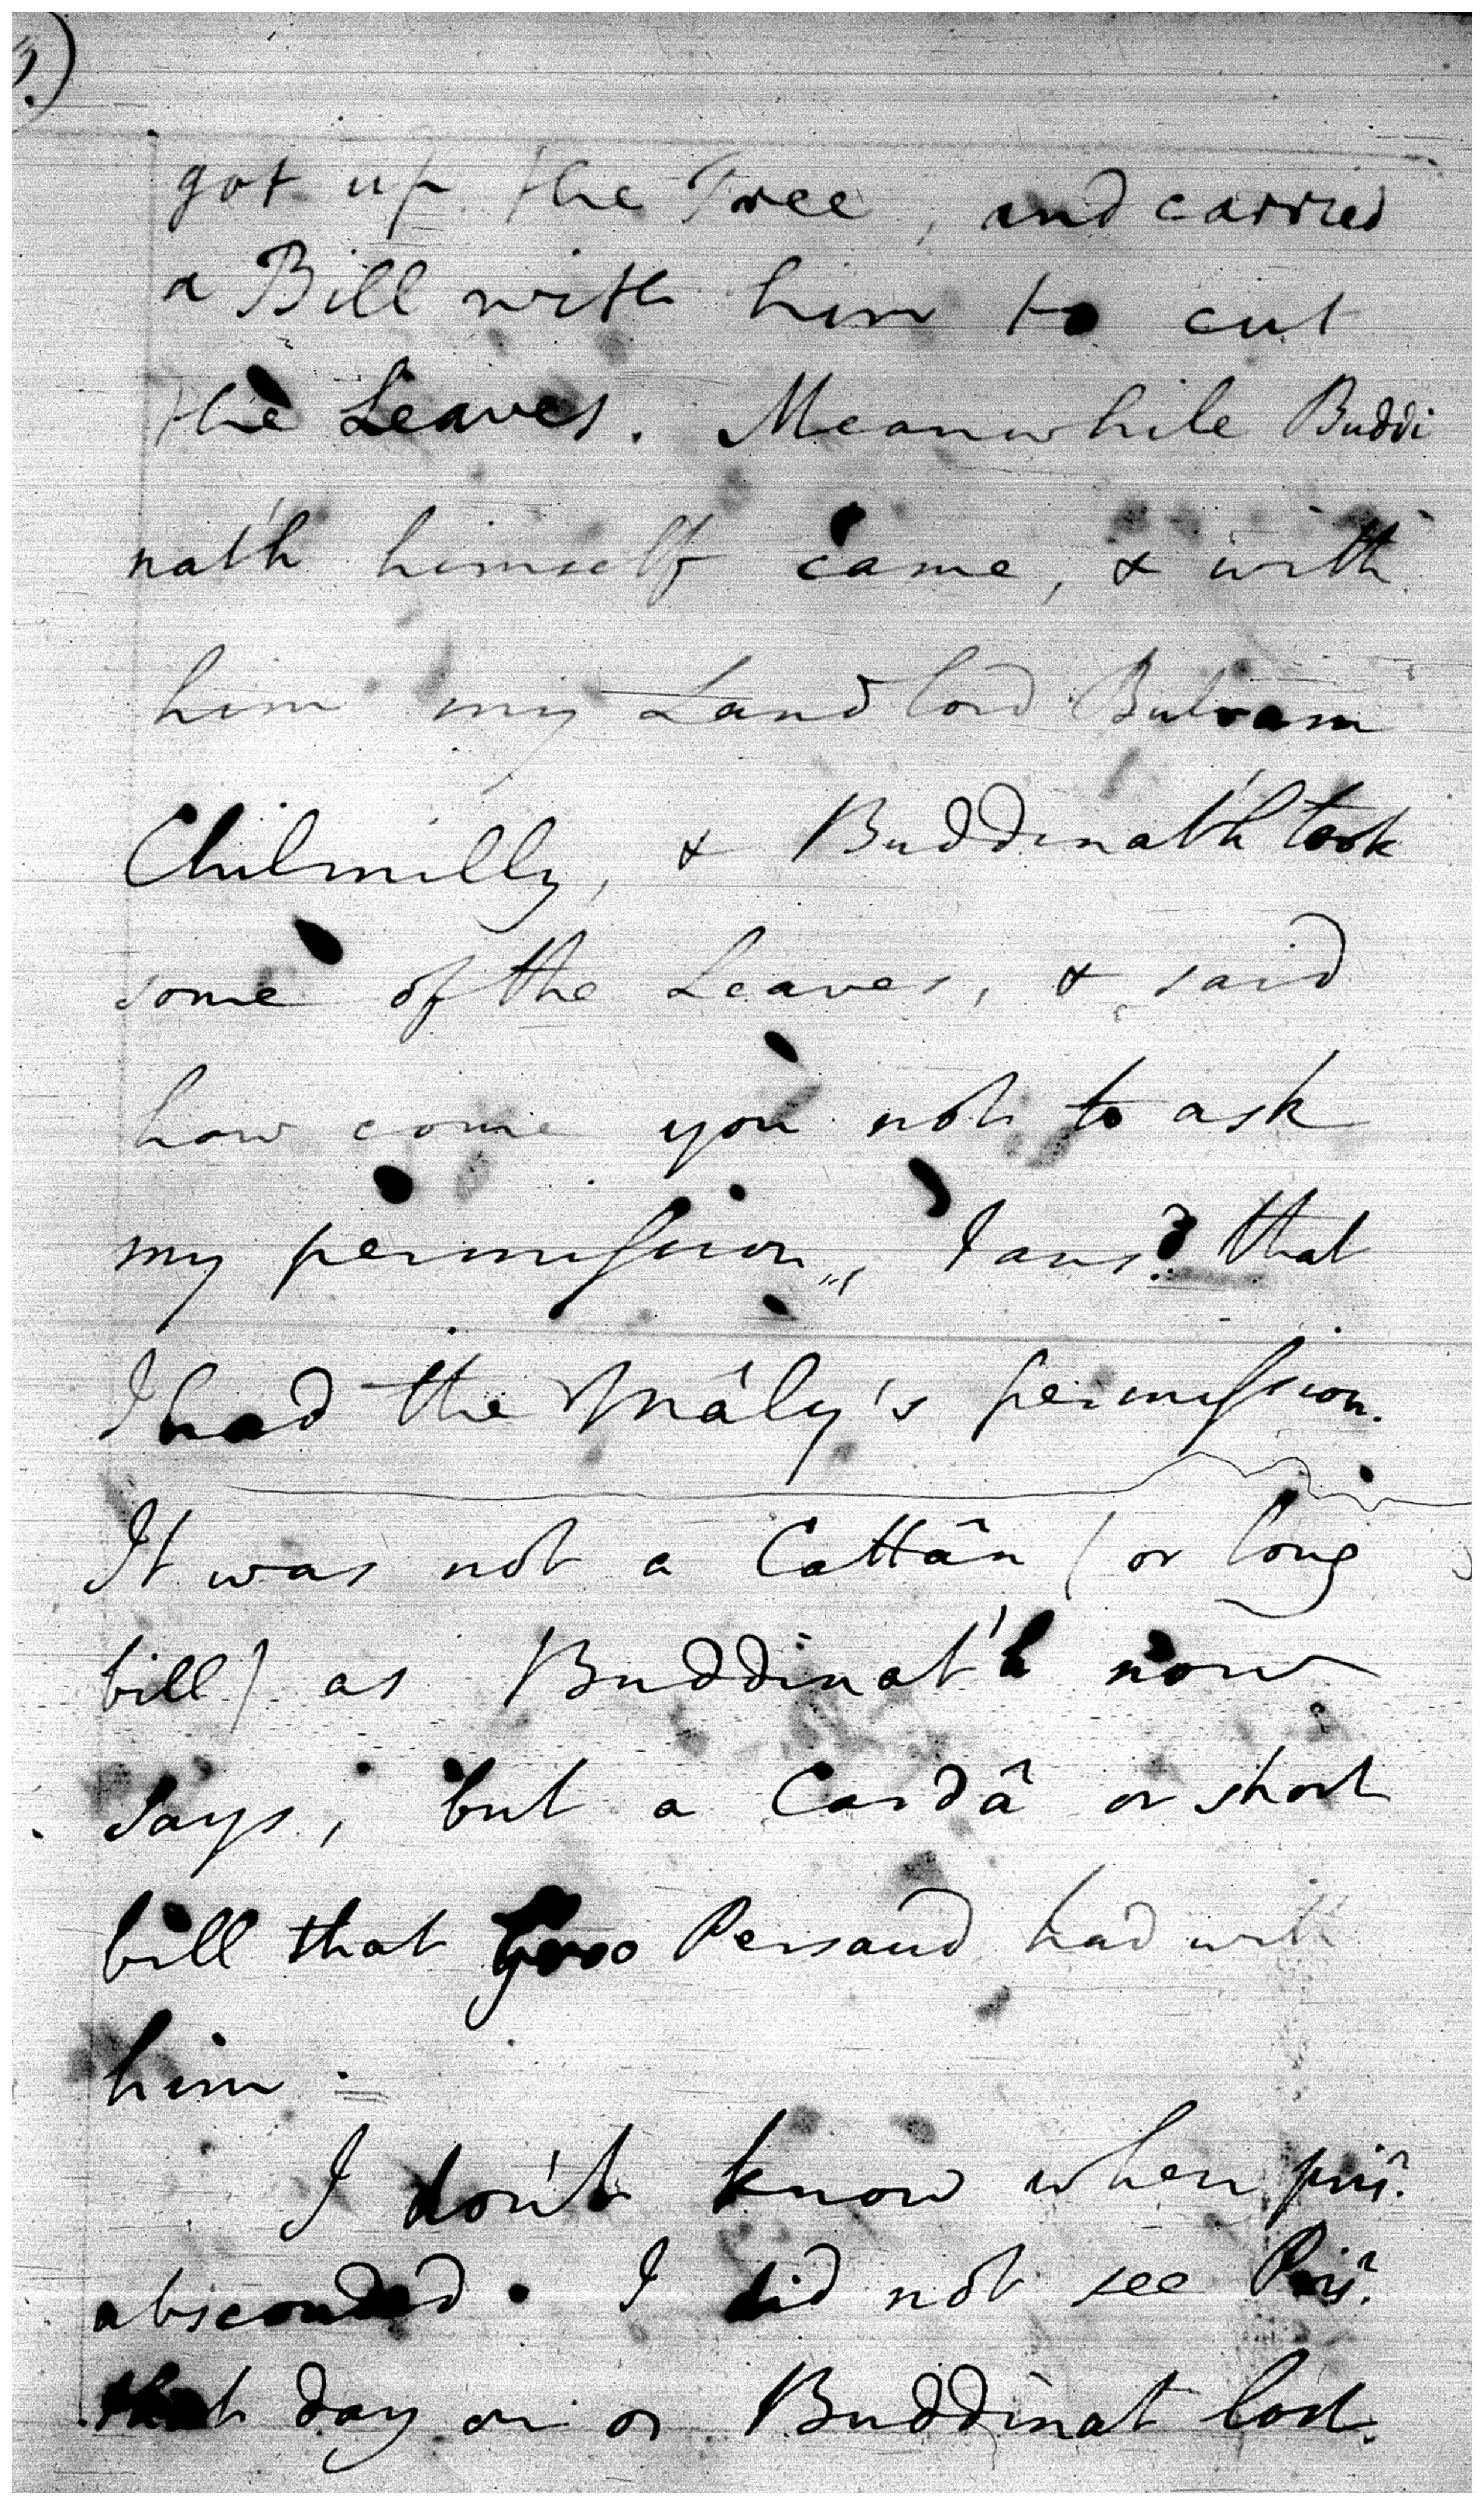 got up the Tree, and carried
a Bill with him to cut
the Leaves. Meanwhile Buddi
nat'h himself came, & with
him my Landlord Bulram
Chilmilly, & Buddinat'h took
some of the Leaves, & said
how come you not to ask
my permiſsion", I ans.d that
I had the Mâly's permiſsion.
It was not a Cattân (or long
bill) as Buddinat'h now
says, but a Cardâ or short
bill that Persaud had with
him.
I don't know when pris.r
absconded. I did not see Pris.r
that day on or Buddinat lost.